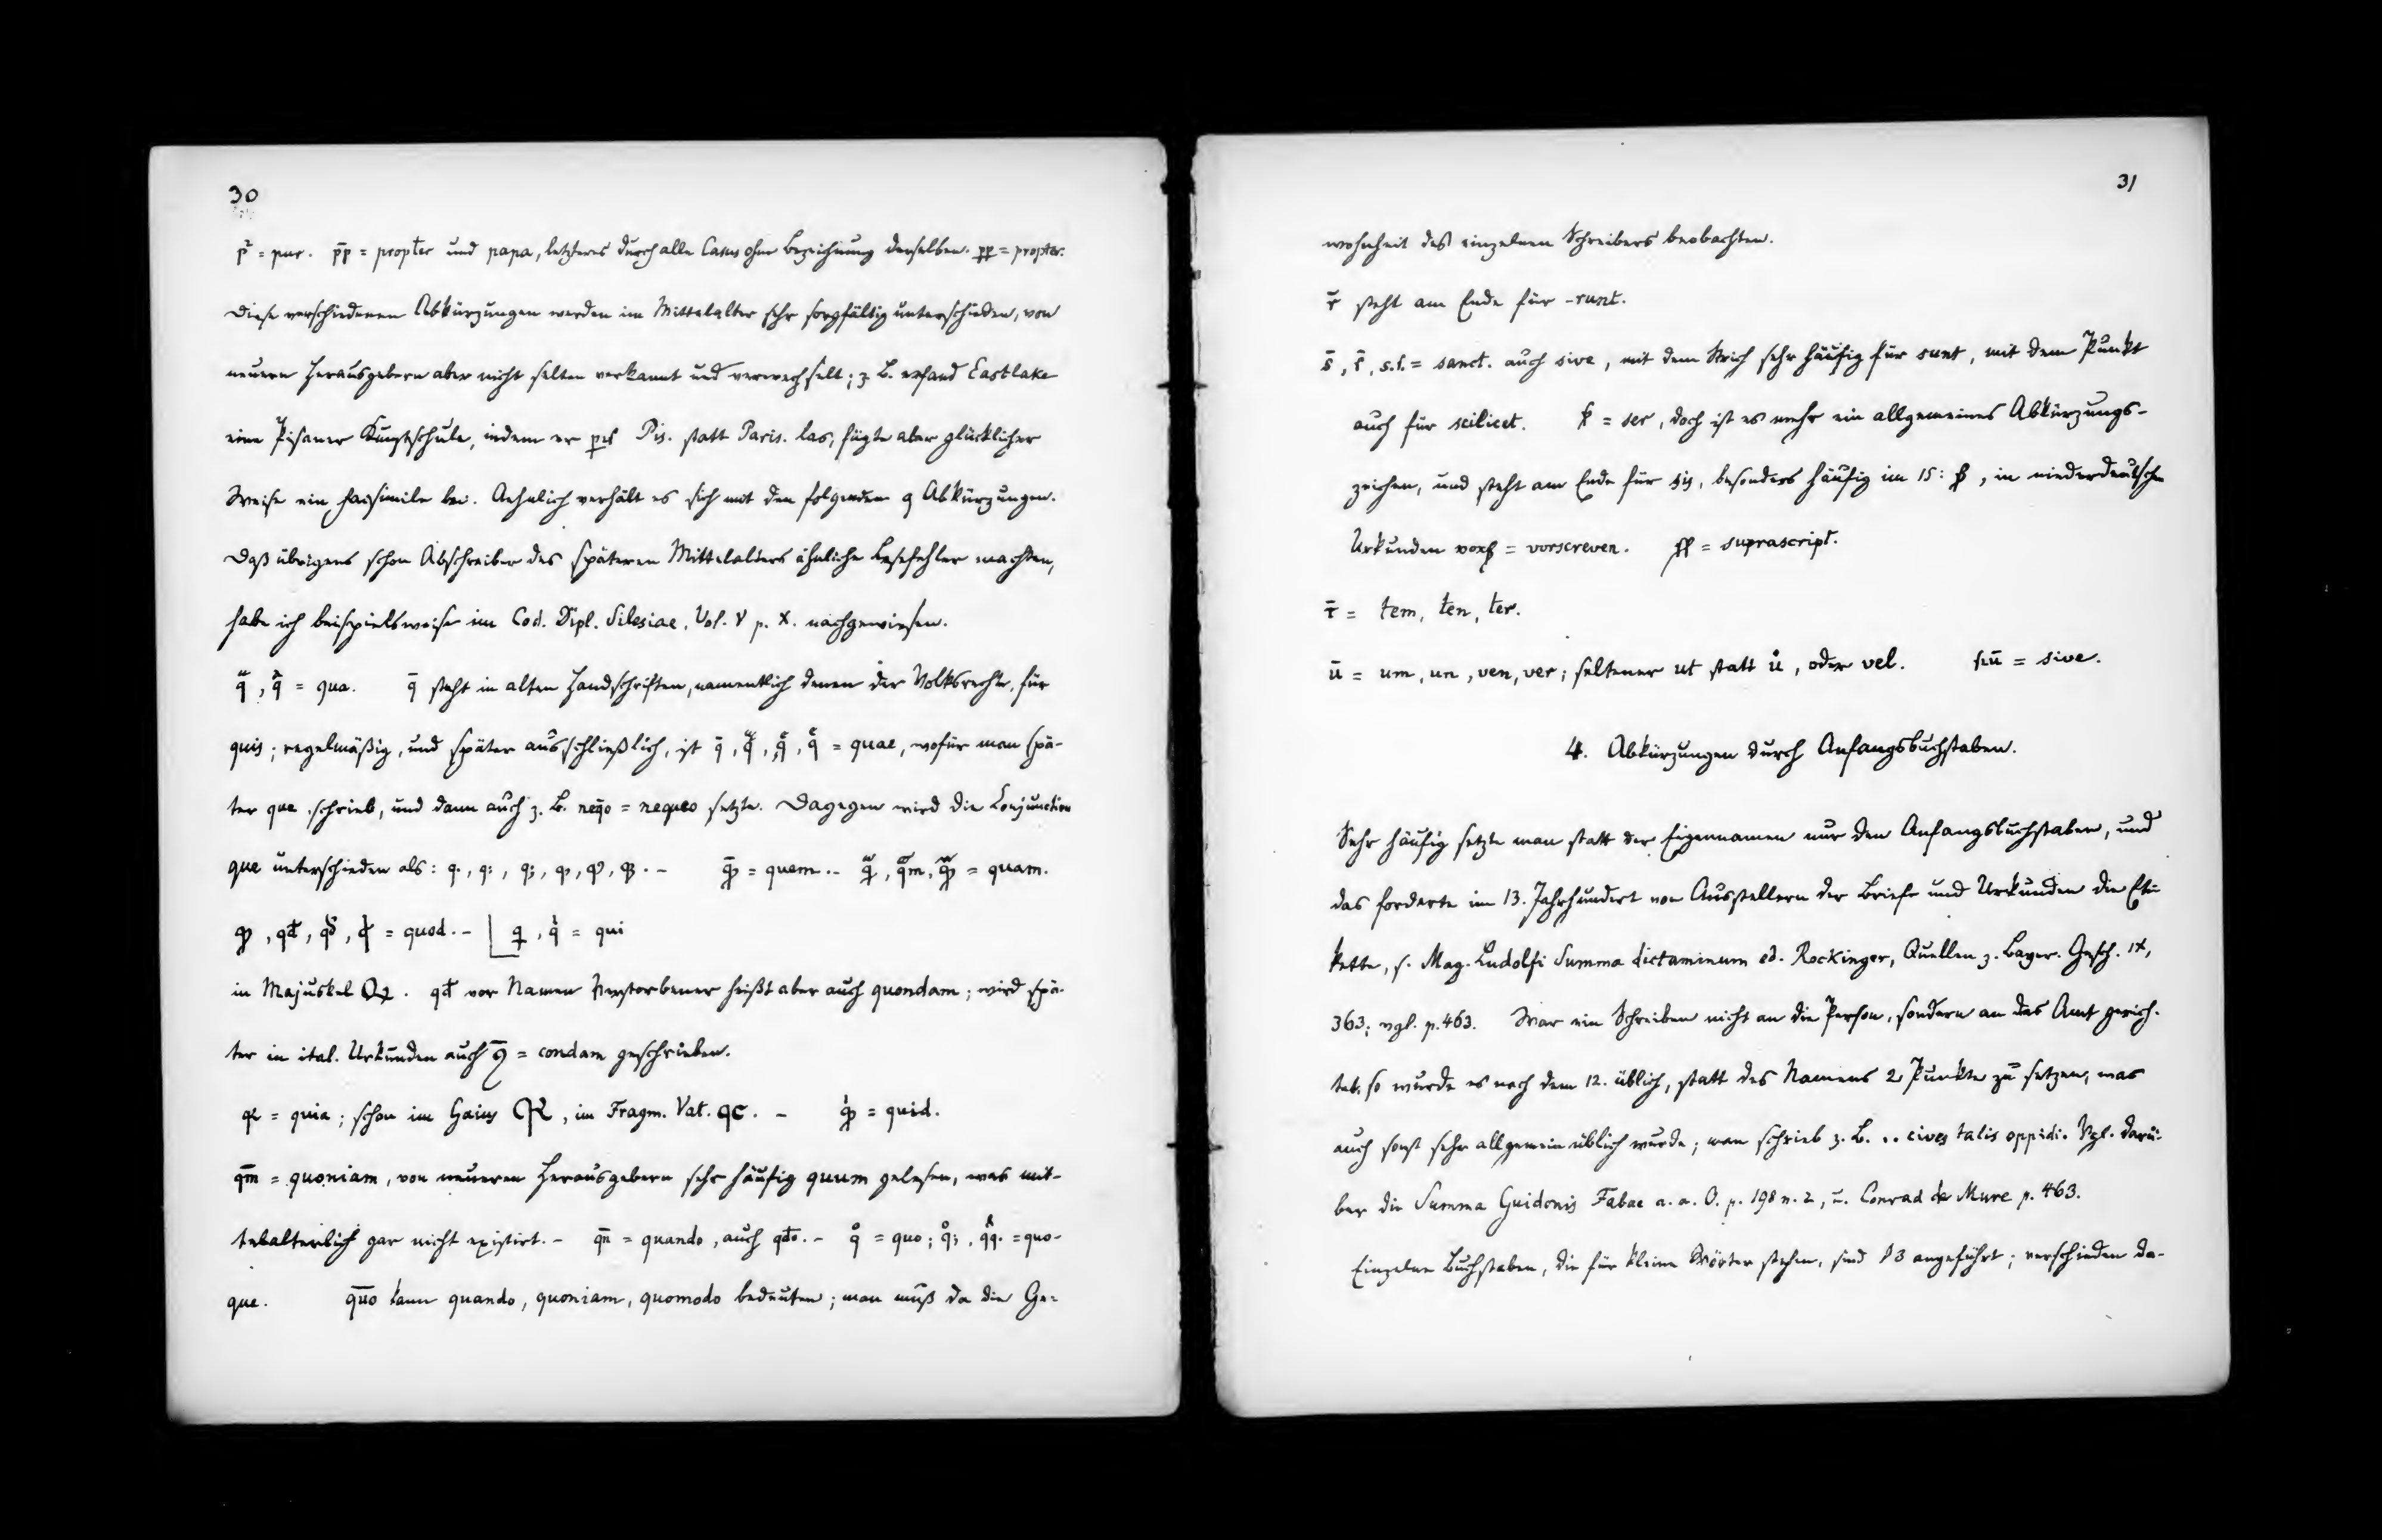 30
p² = pur. p̄p = propter und papa, letzteres durch alle Casus ohne Bezeichnung derselben. ꝓꝓ = propter.
Diese verschiedenen Abkürzungen werden im Mittelalter sehr sorgfältig unterschieden, von
neuern Herausgebern aber nicht selten verkannt und verwechselt; z. B. erfand Eastlake
eine Pisaner Kunstschule, indem er Pis. statt Paris. las, fügte aber glücklicher
Weise ein Facsimile bei. Aehnlich verhält es sich mit den folgenden q Abkürzungen.
Daß übrigens schon Abschreiber des späteren Mittelalters ähnliche Lesefehler machten,
habe ich beispielsweise im Cod. Dipl. Silesiae, Vol. V p. X. nachgewiesen.
= qua. q̄ steht in alten Handschriften, namentlich denen der Volksrechte, für
quis; regelmäßig, und später ausschließlich, ist q̄, = quae, wofür man spä-
ter que schrieb, und dann auch z. B. neq̄o = nequeo setzte. Dagegen wird die Conjunction
que unterschieden als: q., q:, q;, . - = quem. - = quam.
= quod. - q̇ = qui
in Majuskel . qđ vor Namen Verstorbener heißt aber auch quondam; wird spä-
ter in ital. Urkunden auch = condam geschrieben.
= quia; schon im Gaius , im Fragm. Vat. qc. - = quid.
qm̄ = quoniam, von neueren Herausgebern sehr häufig quum gelesen, was mit-
telalterlich gar nicht existirt. - qn̄ = quando, auch qđo. - q̊ = quo; q̊;, = quo-
que. q̄uo kann quando, quoniam, quomodo bedeuten; man muß da die Ge-
31
wohnheit des einzelnen Schreibers beobachten.
r̄ steht am Ende für -runt.
s̄, ſ̄, s.ſ. = sanct. auch sive, mit dem Strich sehr häufig für sunt, mit dem Punkt
auch für scilicet. = ser, doch ist es mehr ein allgemeines Abkürzungs-
zeichen, und steht am Ende für sis, besonders häufig im 15: , in niederdeutschen
Urkunden = vorscreven. = suprascript.
τ̄ = tem, ten, ter.
ū = um, un, ven, ver; seltener ut statt ů, oder vel. ſiū = sive.
4. Abkürzungen durch Anfangsbuchstaben.
Sehr häufig setzte man statt der Eigennamen nur den Anfangsbuchstaben, und
das forderte im 13. Jahrhundert von Ausstellern der Briefe und Urkunden die Eti-
kette, s. Mag. Ludolfi Summa dictaminum ed. Rockinger, Quellen z. Bayer. Gesch. IX,
363; vgl. p. 463. War ein Schreiben nicht an die Person, sondern an das Amt gerich-
tet, so wurde es nach dem 12. üblich, statt des Namens 2 Punkte zu setzen, was
auch sonst sehr allgemein üblich wurde; man schrieb z. B. .. cives talis oppidi. Vgl. darü-
ber die Summa Guidonis Fabae a. a. O. p. 198 n. 2, u. Conrad de Mure p. 463.
Einzelne Buchstaben, die für kleine Wörter stehen, sind § 3 angeführt; verschieden da-